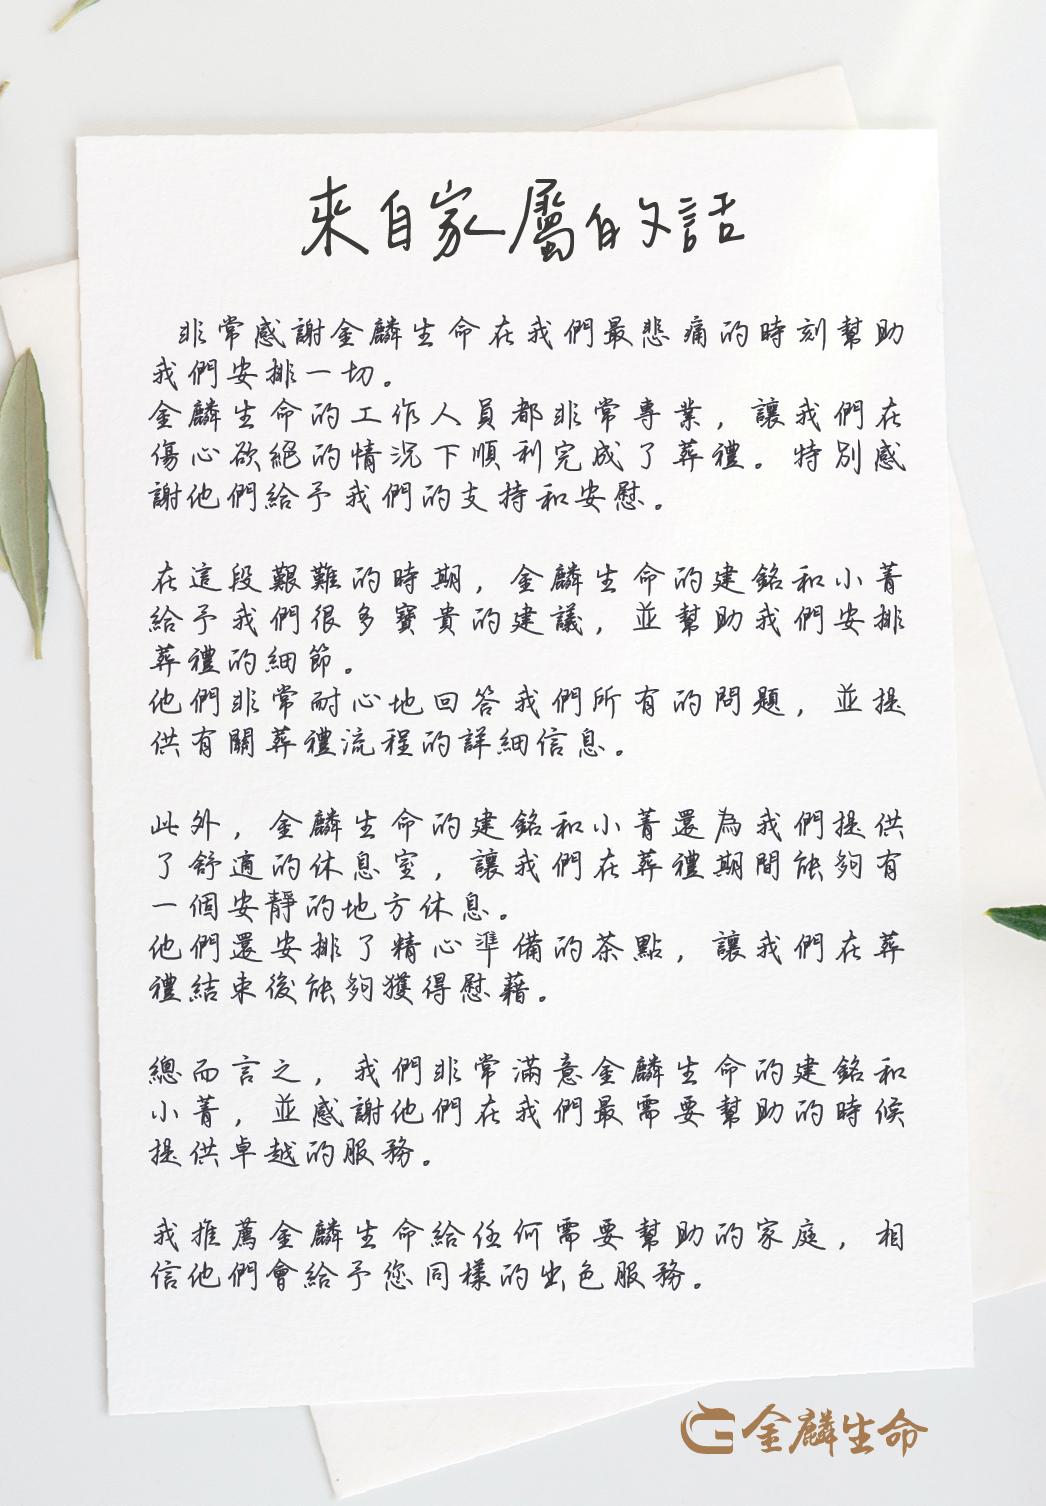 來自家屬的話
非常感謝金麟生命在我們最悲痛的時刻幫助
我們安排一切。
金麟生命的工作人員都非常專業，讓我們在
傷心欲絕的情況下順利完成了葬禮。特別感
謝他們給予我們的支持和安慰。
在這段艱難的時期，金麟生命的建銘和小菁
給予我們很多寶貴的建議，並幫助我們安排
葬禮的細節。
他們非常耐心地回答我們所有的問題，並提
供有關葬禮流程的詳細信息。
此外，金麟生命的建銘和小菁還為我們提供
了舒適的休息室，讓我們在葬禮期間能夠有
一個安靜的地方休息。
他們還安排了精心準備的茶點，讓我們在葬
禮結束後能夠獲得慰藉。
總而言之，我們非常滿意金麟生命的建銘和
小菁，並感謝他們在我們最需要幫助的時候
提供卓越的服務。
我推薦金麟生命給任何需要幫助的家庭，相
信他們會給予您同樣的出色服務。
金麟生命